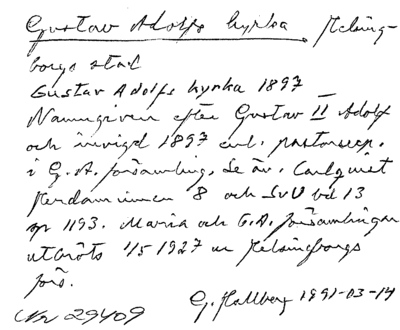 Gustav Adolfs kyrka Helsing-
borgs stad
Gustav Adolfs kyrka 1897
Namngiven efter Gustav II Adolf
och invigd 1897 enl. pastorsexp.
i G. A. församling. Se äv. Carlquist
Herdaminne 8 och SvU bd 13
sp 1193. Maria och G.A. församlingar
utbröts 1/5 1927 ur Helsingborgs
förs.
G. Hallberg 1991-03-14
29409